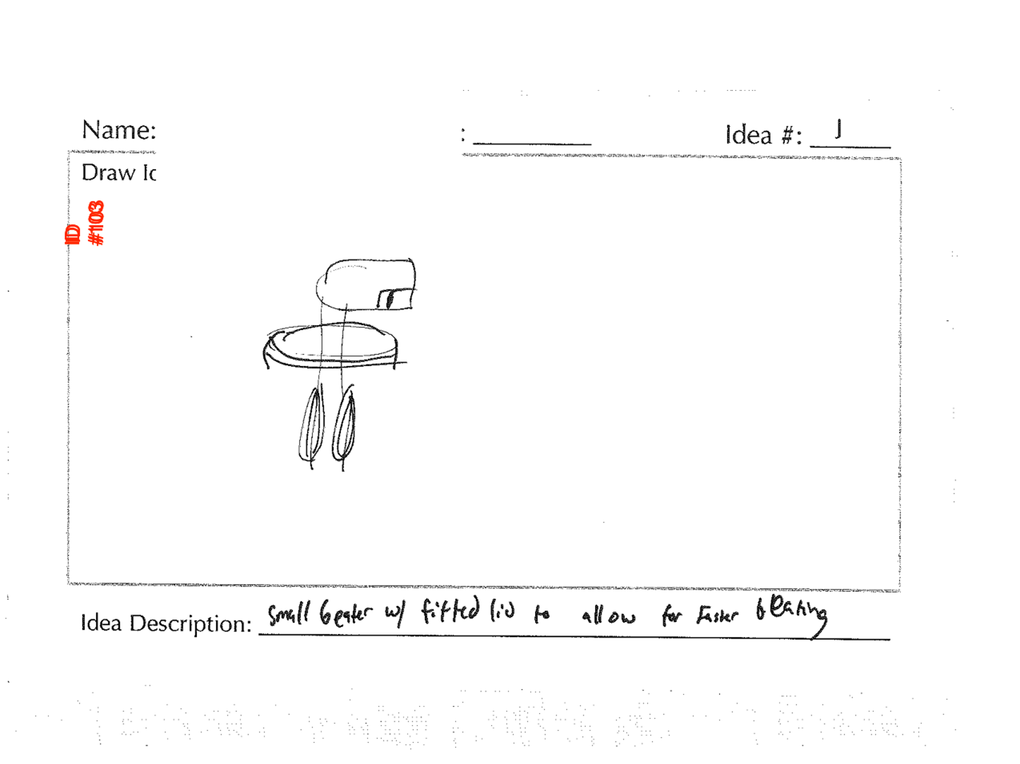 Name: : Idea #: J
Draw Id
ID
#103
Idea Description: Small beater w/ fitted lid to allow for faster beating